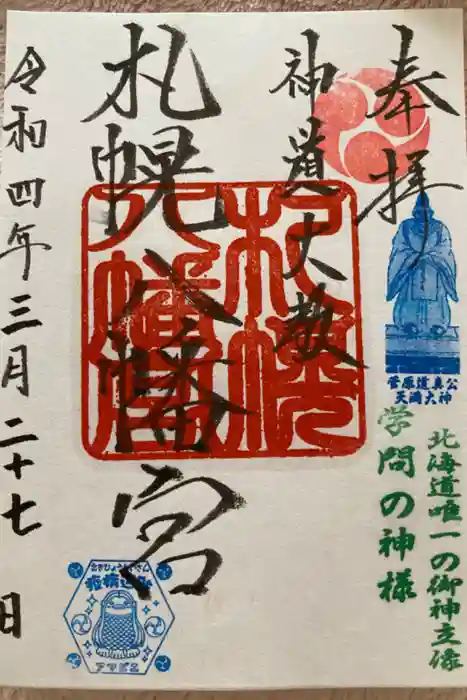 奉拝
神道大教
札幌八幡宮
令和四年三月二十七日
札幌八幡
菅原道真公
天満大神
北海道唯一の御神立像
学問の神様
アマビエ